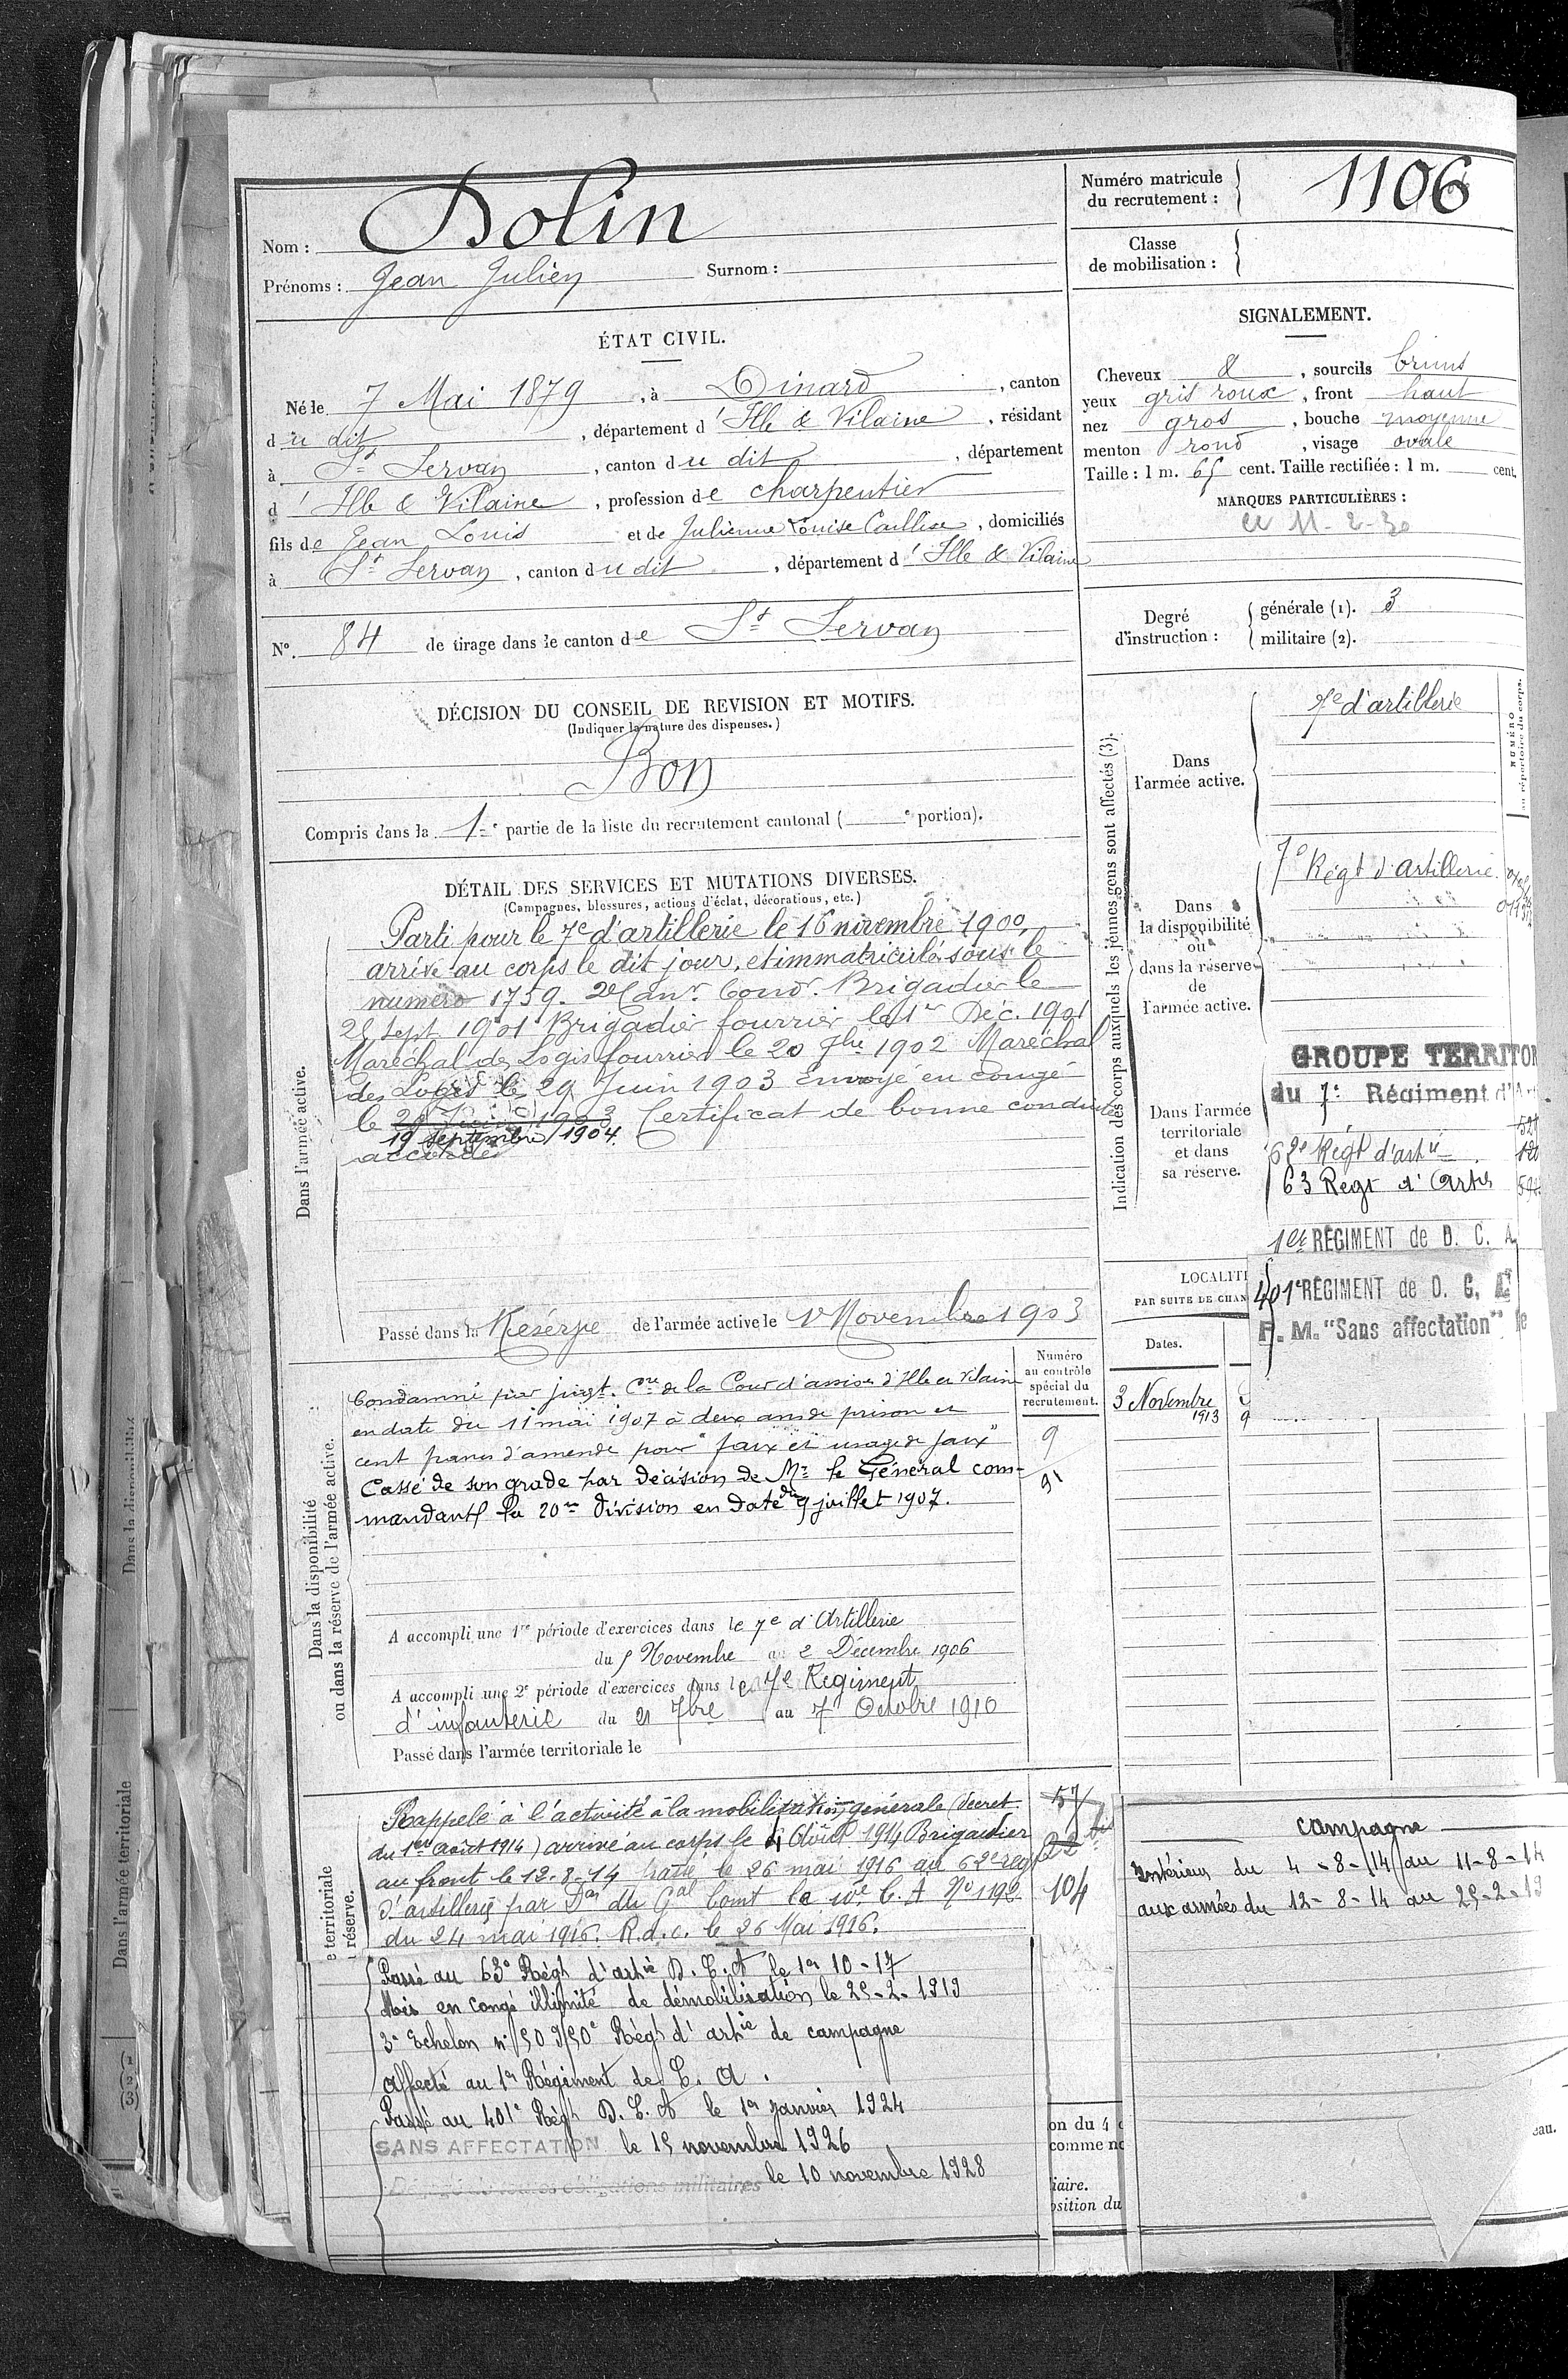 Nom : Dolin
Prénoms : Jean Julien Surnom :
Numéro matricule
du recrutement : 1106
Classe
de mobilisation :
ÉTAT CIVIL.
Né le 7 Mai 1879, à Dinard, canton
du dit, département d'Ille & Vilaine, résidant
à St Servan, canton du dit, département
d'Ille & Vilaine, profession de charpentier
fils de Jean Louis et de Julienne Louise, domiciliés
à St Servan, canton du dit, département d'Ille & Vilaine
N° 84 de tirage dans le canton de St Servan
SIGNALEMENT.
Cheveux &, sourcils bruns
yeux gris roux, front haut
nez gros, bouche moyenne
menton rond, visage ovale
Taille : 1 m. 65 cent. Taille rectifiée : 1 m. cent.
MARQUES PARTICULIÈRES :
11-2-30
Degré
d'instruction :
générale (1). 3
militaire (2).
DÉCISION DU CONSEIL DE REVISION ET MOTIFS.
(Indiquer la nature des dispenses.)
Bon
Compris dans la 1re partie de la liste du recrutement cantonal ( e portion).
DÉTAIL DES SERVICES ET MUTATIONS DIVERSES.
(Campagnes, blessures, actions d'éclat, décorations, etc.)
Dans l'armée active.
Parti pour le 7e d'artillerie le 16 novembre 1900,
arrivé au corps le dit jour, et immatriculé sous le
numéro 1759. 2e Canr Condr. Brigadier le
28 Sept 1901 Brigadier fourrier le 1er Déc. 1901
Maréchal des Logis fourrier le 20 7bre 1902 Maréchal
des Logis le 29 Juin 1903 Envoyé en congé
le 29 Juin 1903 Certificat de bonne conduite
19 septembre 1904.
accordé
Passé dans la Réserve de l'armée active le 1r Novembre 1903
Dans la disponibilité
ou dans la réserve de l'armée active.
Condamné par jugt. Cre de la Cour d'assises d'Ille et Vilaine
en date du 11 mai 1907 à deux ans de prison et
cent francs d'amende pour "faux et usage de faux"
Cassé de son grade par décision de Mr le Général com-
mandant la 20me Division en date du 9 juillet 1907.
Numéro
au contrôle
spécial du
recrutement.
9
91
A accompli une 1re période d'exercices dans le 7e d'Artillerie
du 5 Novembre au 2 Décembre 1906
A accompli une 2e période d'exercices dans le 7e Régiment
d'infanterie du 21 7bre au 7 Octobre 1910
Passé dans l'armée territoriale le
e territoriale
réserve.
Rappelé à l'activité à la mobilisation générale (décret
du 1er août 1914) arrivé au corps le 4 Août 1914 Brigadier
au front le 12-8-14 Passé le 26 mai 1916 au 62e reg
d'artillerie par Don du Gal Comt le 10e C. A N° 1192
du 24 mai 1916. R.d.c. le 26 Mai 1916.
57
22 bis
104
Passé au 63e Régt d'artie D. C. A le 1er 10-17
Mis en congé illimité de démobilisation le 25-2-1919
3e Echelon n° 509/50e Régt d'artie de campagne
Affecté au 1er Régiment de C. A.
Passé au 401e Régt D. C. A le 1er janvier 1924
SANS AFFECTATION le 15 novembre 1926
Dégagé de toutes obligations militaires le 10 novembre 1928
Indication des corps auxquels les jeunes gens sont affectés (3).
NUMÉRO
au répertoire du corps.
Dans
l'armée active.
7e d'artillerie
Dans
la disponibilité
ou
dans la réserve
de
l'armée active.
7e Régt d'Artillerie.
Dans l'armée
territoriale
et dans
sa réserve.
GROUPE TERRITOR
du 7e Régiment d'Ar
62e Régt d'artie
63 Regt d'Artie
1er RÉGIMENT de D. C. A
401e RÉGIMENT de D. C. A
F. M. "Sans affectation" le
LOCALITÉ
PAR SUITE DE CHAN
Dates.
3 Novembre
1913
campagne
Intérieur du 4-8-14 au 11-8-14
aux armées du 12-8-14 au 25-2-19
on du 4
comme no
iaire.
osition du
eau.
Dans l'armée territoriale
Dans la disponibilité
(1)
(2)
(3)